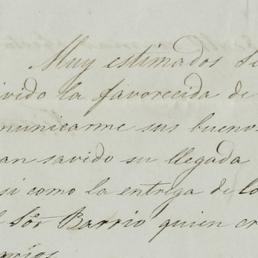 Muy estimados Se
ivido la favorecida de
municarme sus buenos
an savido su llegada
si como la entrega de lo
l Sôr Barrio quien en